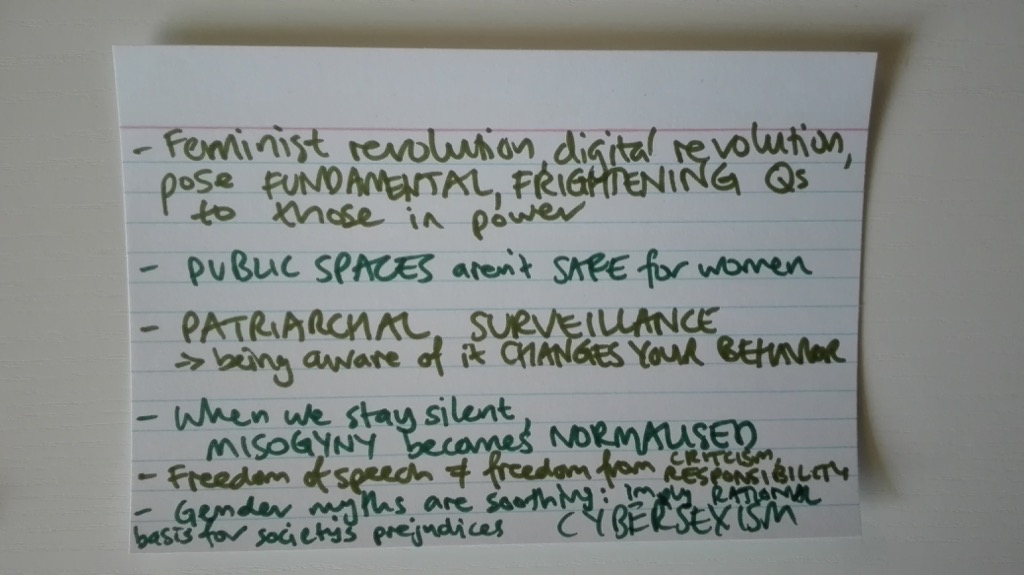 - Feminist revolution, digital revolution,
pose FUNDAMENTAL, FRIGHTENING Qs
to those in power
- PUBLIC SPACES aren't SAFE for women
- PATRIARCHAL SURVEILLANCE
→ being aware of it CHANGES YOUR BEHAVIOR
- When we stay silent,
MISOGYNY becomes NORMALISED
- Freedom of speech ≠ freedom from CRITCISM,
RESPONSIBILITY
- Gender myths are soothing: imply RATIONAL
basis for society's prejudices CYBERSEXISM